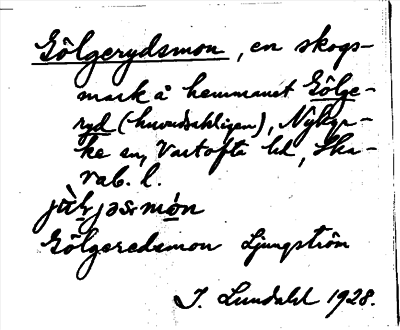 Gölgerydsmon, en skogs-
mark å hemmanet Gölge-
ryd (huvudsakligen), Nykyr-
ke sn, Vartofta hd, Ska-
rab. l.
Gölgeredsmon Ljungström
J. Lundahl 1928.